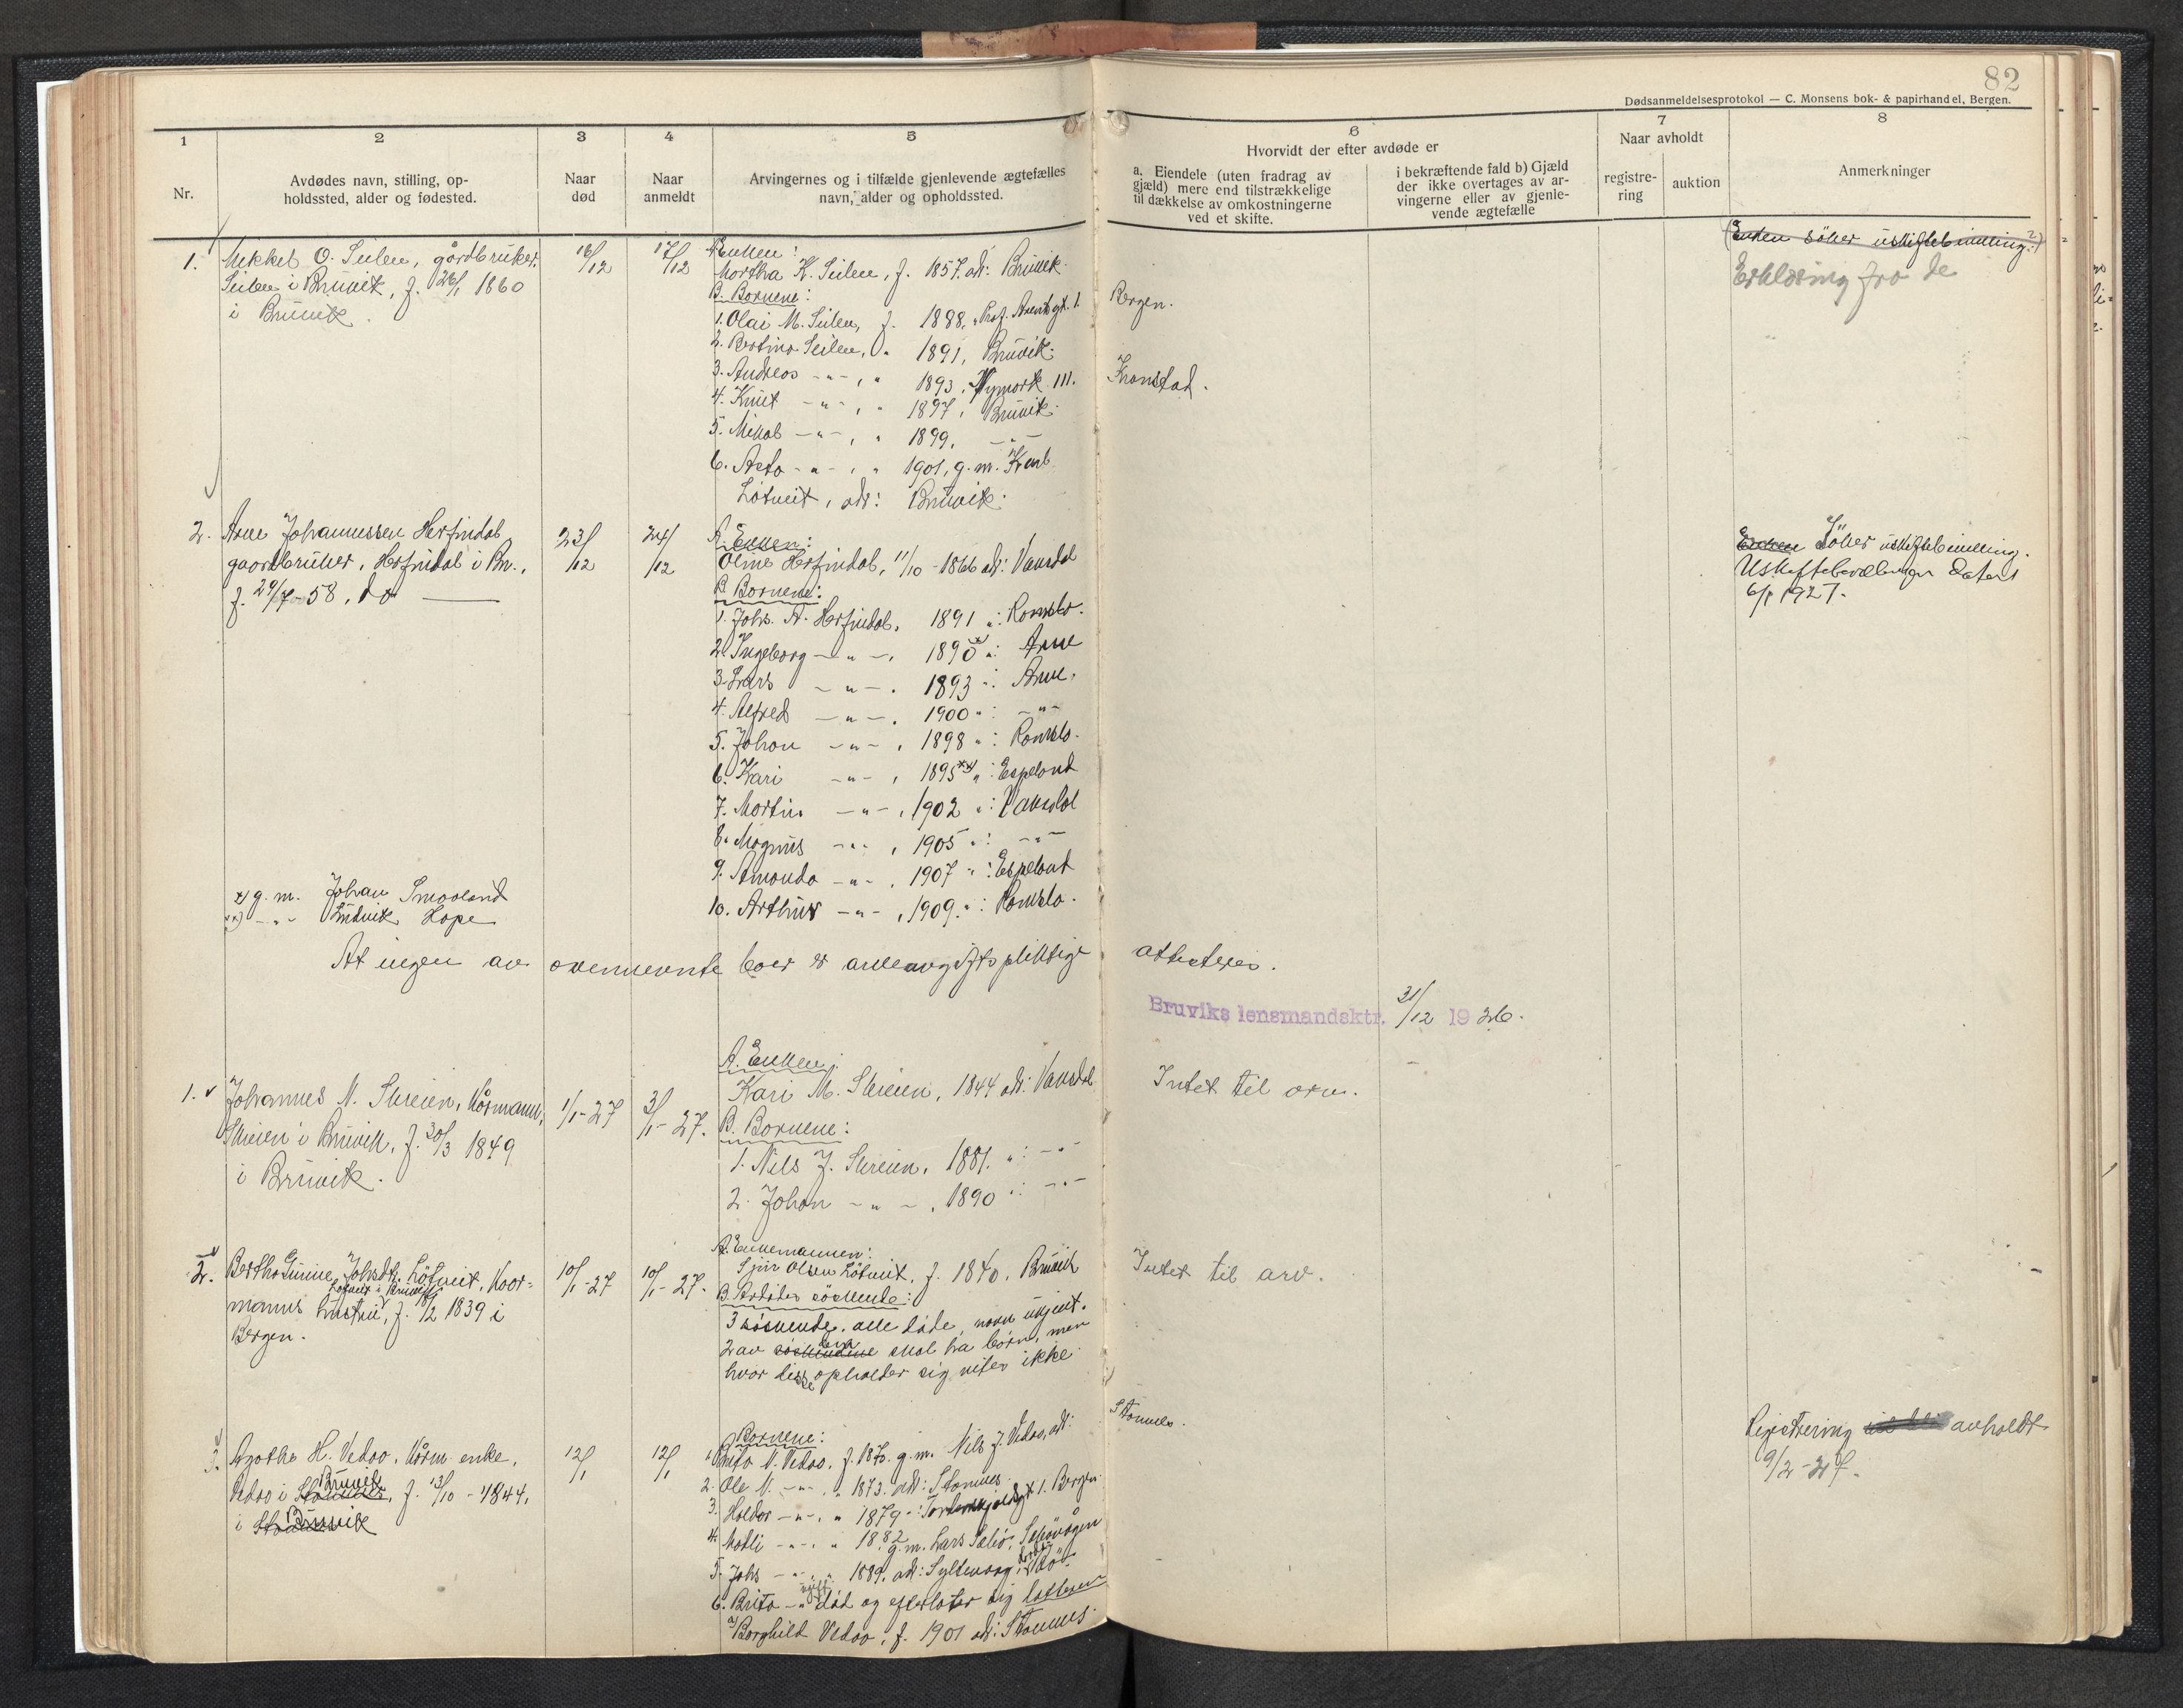 82
Dødsanmeldelsesprotokol — C. Monsens bok- & papirhandel, Bergen.
1
2
3
4
5
6
7
8
Nr.
Avdødes navn, stilling, op-
holdssted, alder og fødested.
Naar
død
Naar
anmeldt
Arvingernes og i tilfælde gjenlevende ægtefælles
navn, alder og opholdssted.
Hvorvidt der efter avdøde er
a. Eiendele (uten fradrag av
gjæld) mere end tilstrækkelige
til dækkelse av omkostningerne
ved et skifte.
i bekræftende fald b) Gjæld
der ikke overtages av ar-
vingerne eller av gjenle-
vende ægtefælle
Naar avholdt
registre-
ring
auktion
Anmerkninger
1. Mikkel O. Seilen, gårdbruker.
Seilen i Bruvik, f. 26/1 1860
i Bruvik.
16/12
17/12
A. Enken:
Martha K. Seilen, f. 1857. adr: Bruvik.
B. Børnene:
1. Olai M. Seilen, f. 1888, " Prof. gt. 1. Bergen.
2. Bertina Seilen, " 1891, Bruvik.
3. Andreas -"-, " 1893, Nymark 111. Kronstad.
4. Knut -"-, " 1897, Bruvik.
5. Mikal -"-, " 1899, -"-
6. -"-, " 1901, g. m. Karl
Løtveit, adr: Bruvik.
(Enken søker uskiftebevilling?)
Erklæring fra de
2. Arne Johannessen Herfindal
gaardbruker, Herfindal i Br.,
f. 29/7-58, do —
23/12
24/12
A. Enken:
Oline Herfindal, 11/10-1866 adr: Vaksdal
B. Børnene:
1. Johs. A. Herfindal, 1891 ": Romslo.
2. Ingeborg -"-, 1890 x) ": Arne
3. Lars -"-, 1893 ": Arne.
4. Alfred -"-, 1900 ": -"-
5. Johan -"-, 1898 ": Romslo.
6. Kari -"-, 1895 xx) ": Espeland
7. Martin -"-, 1902 ": Vaksdal
8. Magnus -"-, 1905 ": -"-
9. Amanda -"-, 1907 ": Espeland
10. Arthur -"-, 1909. ": Romslo.
Enken Søker uskiftebevilling.
Uskiftebevilling datert
6/1 1927.
x) g. m. Johan Smaaland
xx) -"- Ludvik Hope
At ingen av ovennevnte boer er arveavgiftspliktige attesteres.
Bruviks lensmandsktr. 31/12 1926.
1. Johannes N. Skreien, Kårmann,
Skreien i Bruvik, f. 30/3 1849
i Bruvik.
1/1-27
3/1-27.
A. Enken:
Kari M. Skreien, 1844 adr: Vaksdal
B. Børnene:
1. Nils J. Skreien, 1881. ": -"-
2. Johan -"-, 1890 ": -"-
Intet til arv.
2. Johsdtr. Løtveit, Kaar-
Løtveit i Bruvik
manns hustru, f. /2 1839 i
Bergen.
10/1-27
10/1-27.
A. Enkemannen:
Sjur Olsen Løtveit, f. 1840, Bruvik
B. Avdødes søskende:
3 søskende, alle døde, navn ukjent.
2 av søskendene skal ha børn, men
hvor disse opholder sig vites ikke.
Intet til arv.
3. Agatha H. Vedaa, Kårm. enke,
Vedaa i Stamnes Bruvik, f. 13/10-1844,
i Stamnes Bruvik
12/1
12/1
Børnene:
1. Brita N. Vedaa, f. 1870. g. m. Nils J. Vedaa, adr: Stamnes.
2. Ole N. -"-, " 1873. adr: Stamnes.
3. Haldor -"-, " 1879 ": Tordenskjoldsgt 1. Bergen
4. Matli -"-, " 1882 g. m. Lars Sæbø, Sæbøvågen
5. Johs -"-, " 1889, adr:
6. Brita -"- ugift død og efterlater sig datteren
a) Borghild Vedaa, f. 1901 adr: Stamnes.
Registrering avholdt
9/2-27.